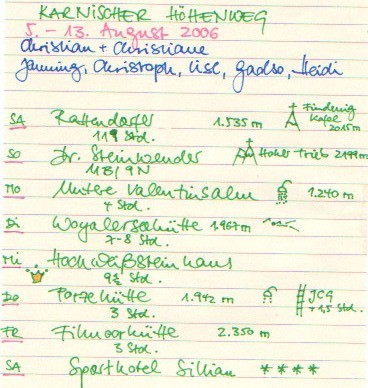 KARNISCHER HÖHENWEG
5. – 13. August 2006
Christian + Christiane
Janning, Christoph, Lise, Gadso, Heidi
SA Rattendorfer 1.535 m Findenig Kofel 2015m
11 Std.
SO Dr. Steinwender Hoher Trieb 2199m
11B/9N
MO Untere Valentinalm 1.240 m
4 Std.
DI Wolayerseehütte 1.967 m
7-8 Std.
MI Hochweißsteinhaus
9½ Std.
DO Porzehütte 1.942 m JCG
3 Std. + 1,5 Std.
FR Filmoorhütte 2.350 m
3 Std.
SA Sporthotel Sillian ****